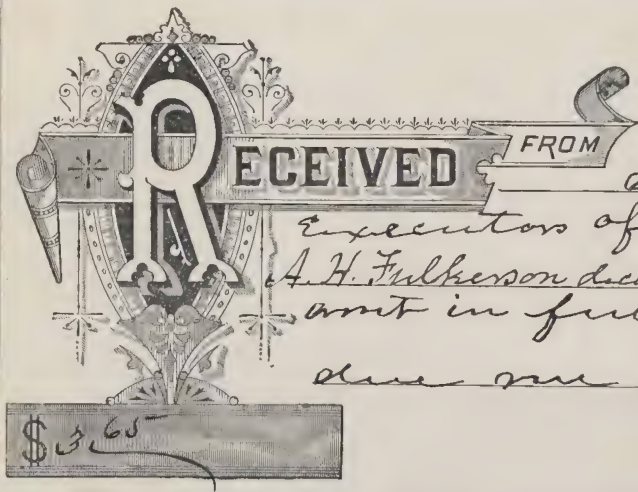 RECEIVED FROM
Executors of
A. H. Fulkerson
amt in
due me
$ 3.65